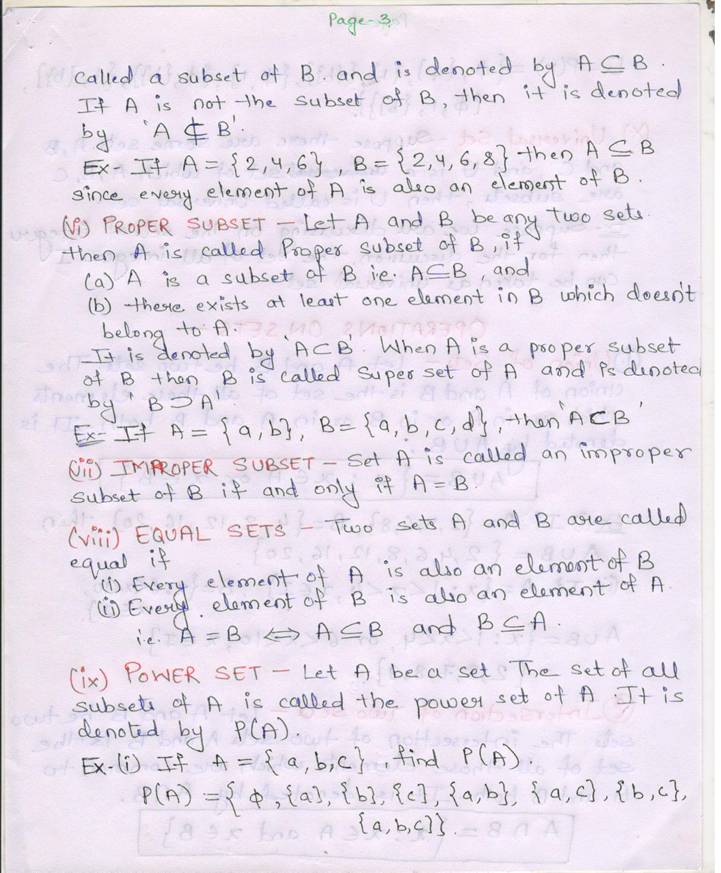 Page-3
called a subset of B. and is denoted by A ⊆ B.
If A is not the subset of B, then it is denoted
by 'A ⊄ B'.
Ex- If A = {2,4,6}, B = {2,4,6,8} then A ⊆ B
since every element of A is also an element of B.
(vi) PROPER SUBSET – Let A and B be any two sets.
then A is called Proper subset of B, if
(a) A is a subset of B i.e. A⊆B, and
(b) there exists at least one element in B which doesn't
belong to A.
It is denoted by 'A⊂B'. When A is a proper subset
of B then B is called super set of A and is denoted
by 'B⊃A'
Ex- If A = {a,b}, B= {a,b,c,d}, then 'A⊂B'
(vii) IMPROPER SUBSET – Set A is called an improper
subset of B if and only if A=B.
(viii) EQUAL SETS – Two sets A and B are called
equal if
(i) Every element of A is also an element of B
(ii) Every element of B is also an element of A.
i.e. A = B ⇔ A⊆B and B⊆A.
(ix) POWER SET – Let A be a set. The set of all
subsets of A is called the power set of A. It is
denoted by P(A).
Ex-(i) If A = {a,b,c}, find P(A).
P(A) = {ϕ, {a}, {b}, {c}, {a,b}, {a,c}, {b,c},
{a,b,c}}.